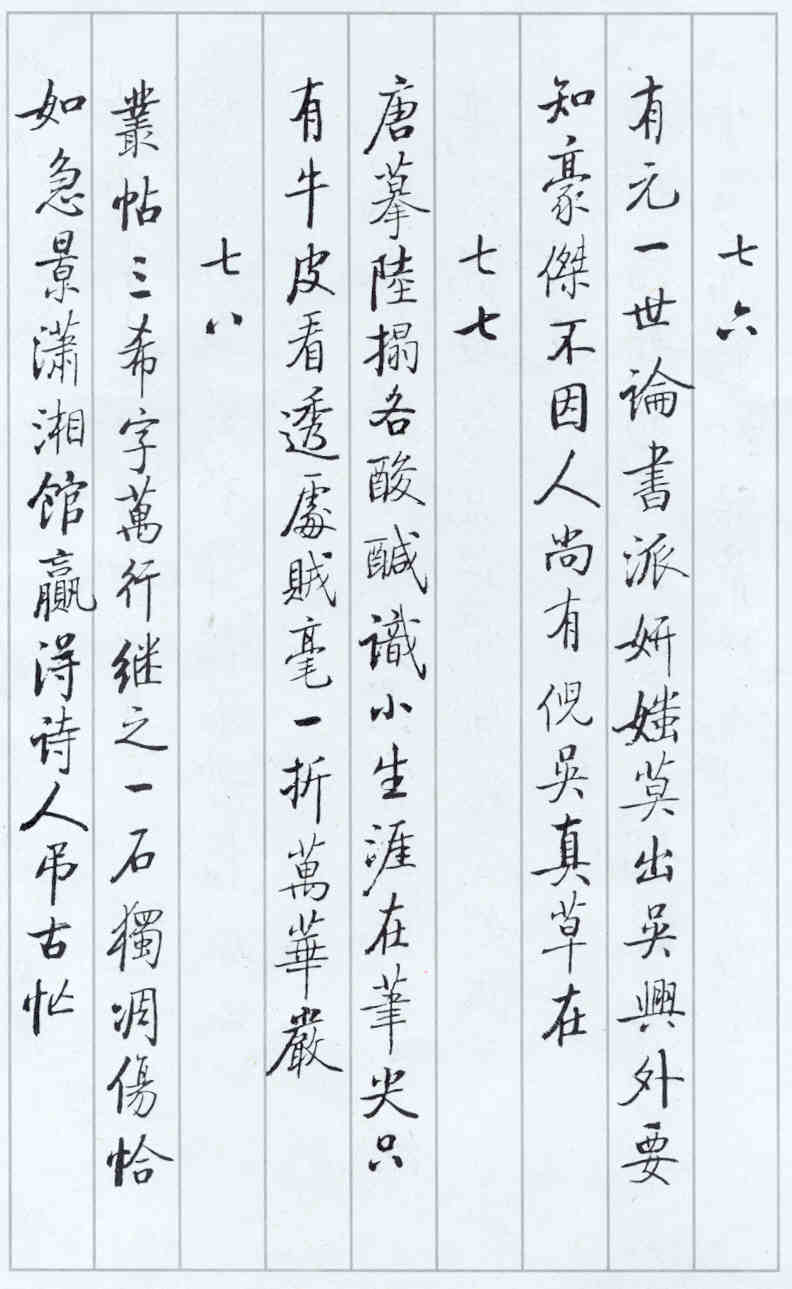 七六
有元一世論書派妍媸莫出吳興外要
知豪傑不因人尚有倪吳真草在
七七
唐摹陸搨各酸醎識小生涯在筆尖只
有牛皮看透處賊毫一折萬華嚴
七八
叢帖三希字萬行继之一石獨凋傷恰
如急景瀟湘館贏得诗人吊古忙